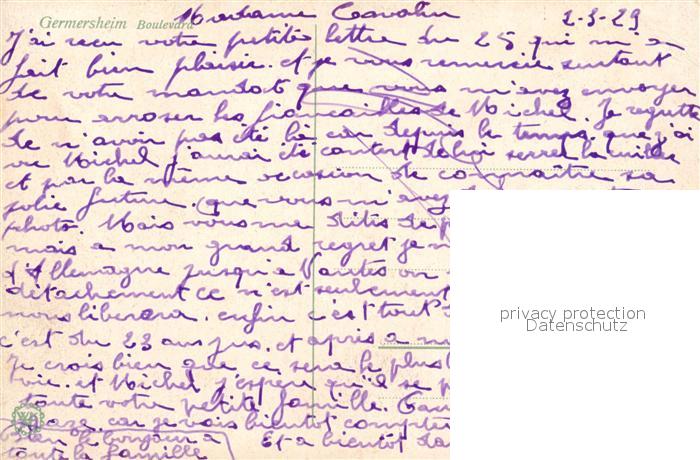 Germersheim Boulevard
Madame 2-3-29
J'ai reçu votre petite lettre du 25 qui m'a
fait bien plaisir. et je vous remercie surtout
de votre mandat que vous m'avez envoyer
pour arroser les fiancailles de Michel. Je regrette
de n'avoir pas été là car depuis le temps que j'ai
vu Michel j'aurai été content de lui serrer la
et par la même occasion de connaître sa
jolie future. que vous m'avez
photo. Mais vous me dites de
mais a mon grand regret je
d'Allemagne jusqu'a Nantes on
détachement ce n'est seulement
nous liberera. enfin c'est tout
c'est du 23 ans jus. et après a
Je crois bien que ce sera le plus
vie. et Michel j'espère qu'il se
toute votre petite famille.
car je vais bientot
le bonjour a Et a bientot
toute la famille
privacy protection
Datenschutz